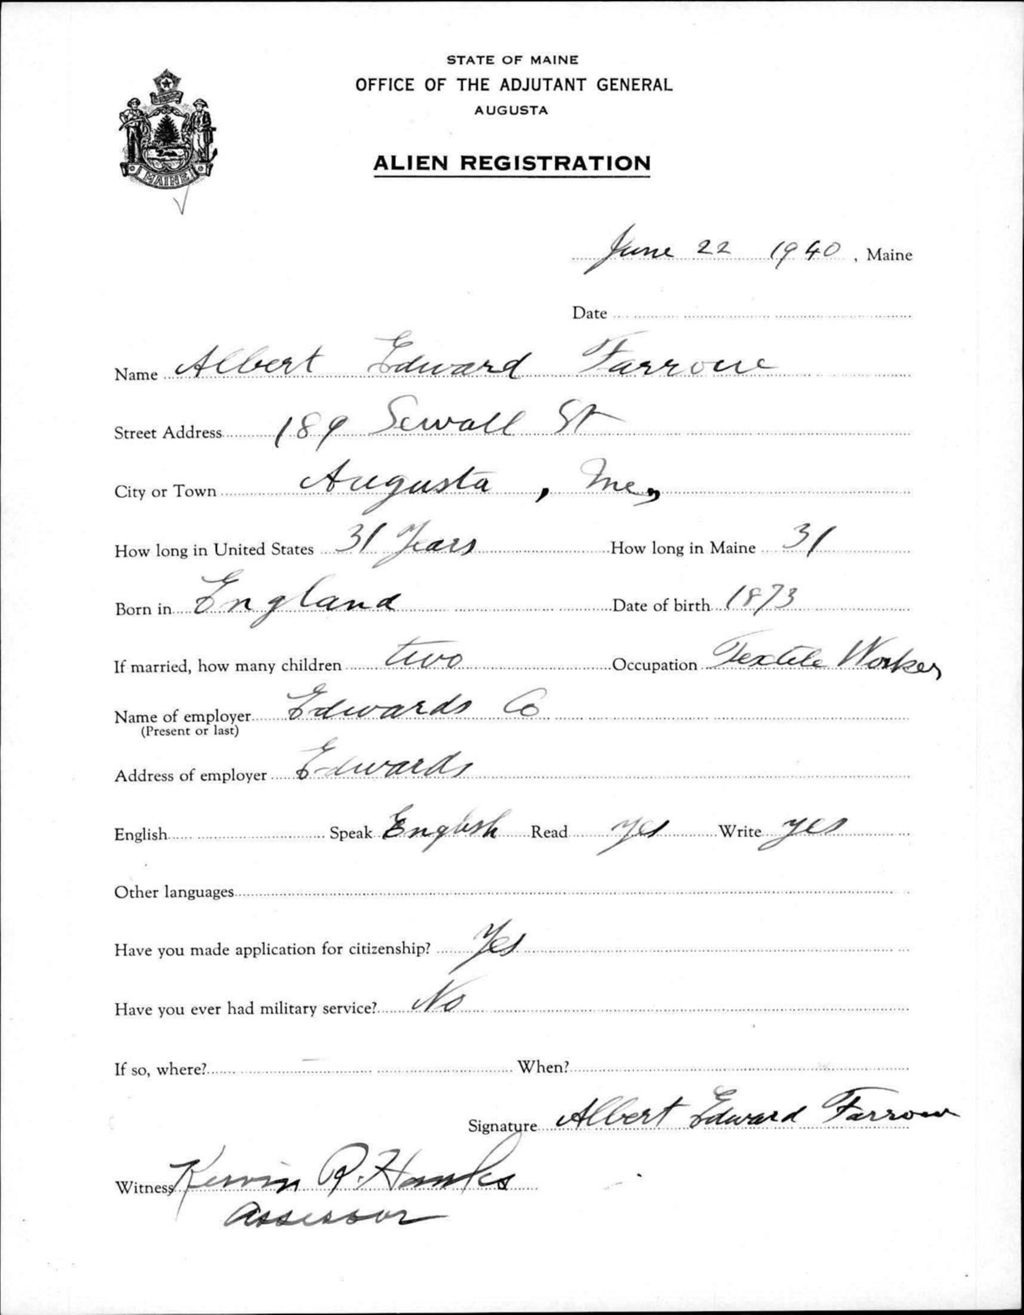 STATE OF MAINE
OFFICE OF THE ADJUTANT GENERAL
AUGUSTA
ALIEN REGISTRATION
MAINE
June 22 1940, Maine
Date
Name Albert Edward Farrow
Street Address 189 Sewall St
City or Town Augusta, Me,
How long in United States 31 Years How long in Maine 31
Born in England Date of birth 1873
If married, how many children two Occupation Textile Worker
Name of employer Edwards Co
(Present or last)
Address of employer Edwards
English Speak English Read yes Write yes
Other languages
Have you made application for citizenship? Yes
Have you ever had military service? No
If so, where? When?
Signature Albert Edward Farrow
Witness R. Hawks
Assessor